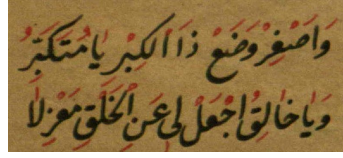 وَاَصْغِرْ وَضَعْ ذَا الْكِبْرِ يَا مُتَكَبِّرُ
وَيَا خَالِقُ اجْعَلْ لِى عَنِ الْخَلْقِ مَعْزِلَا